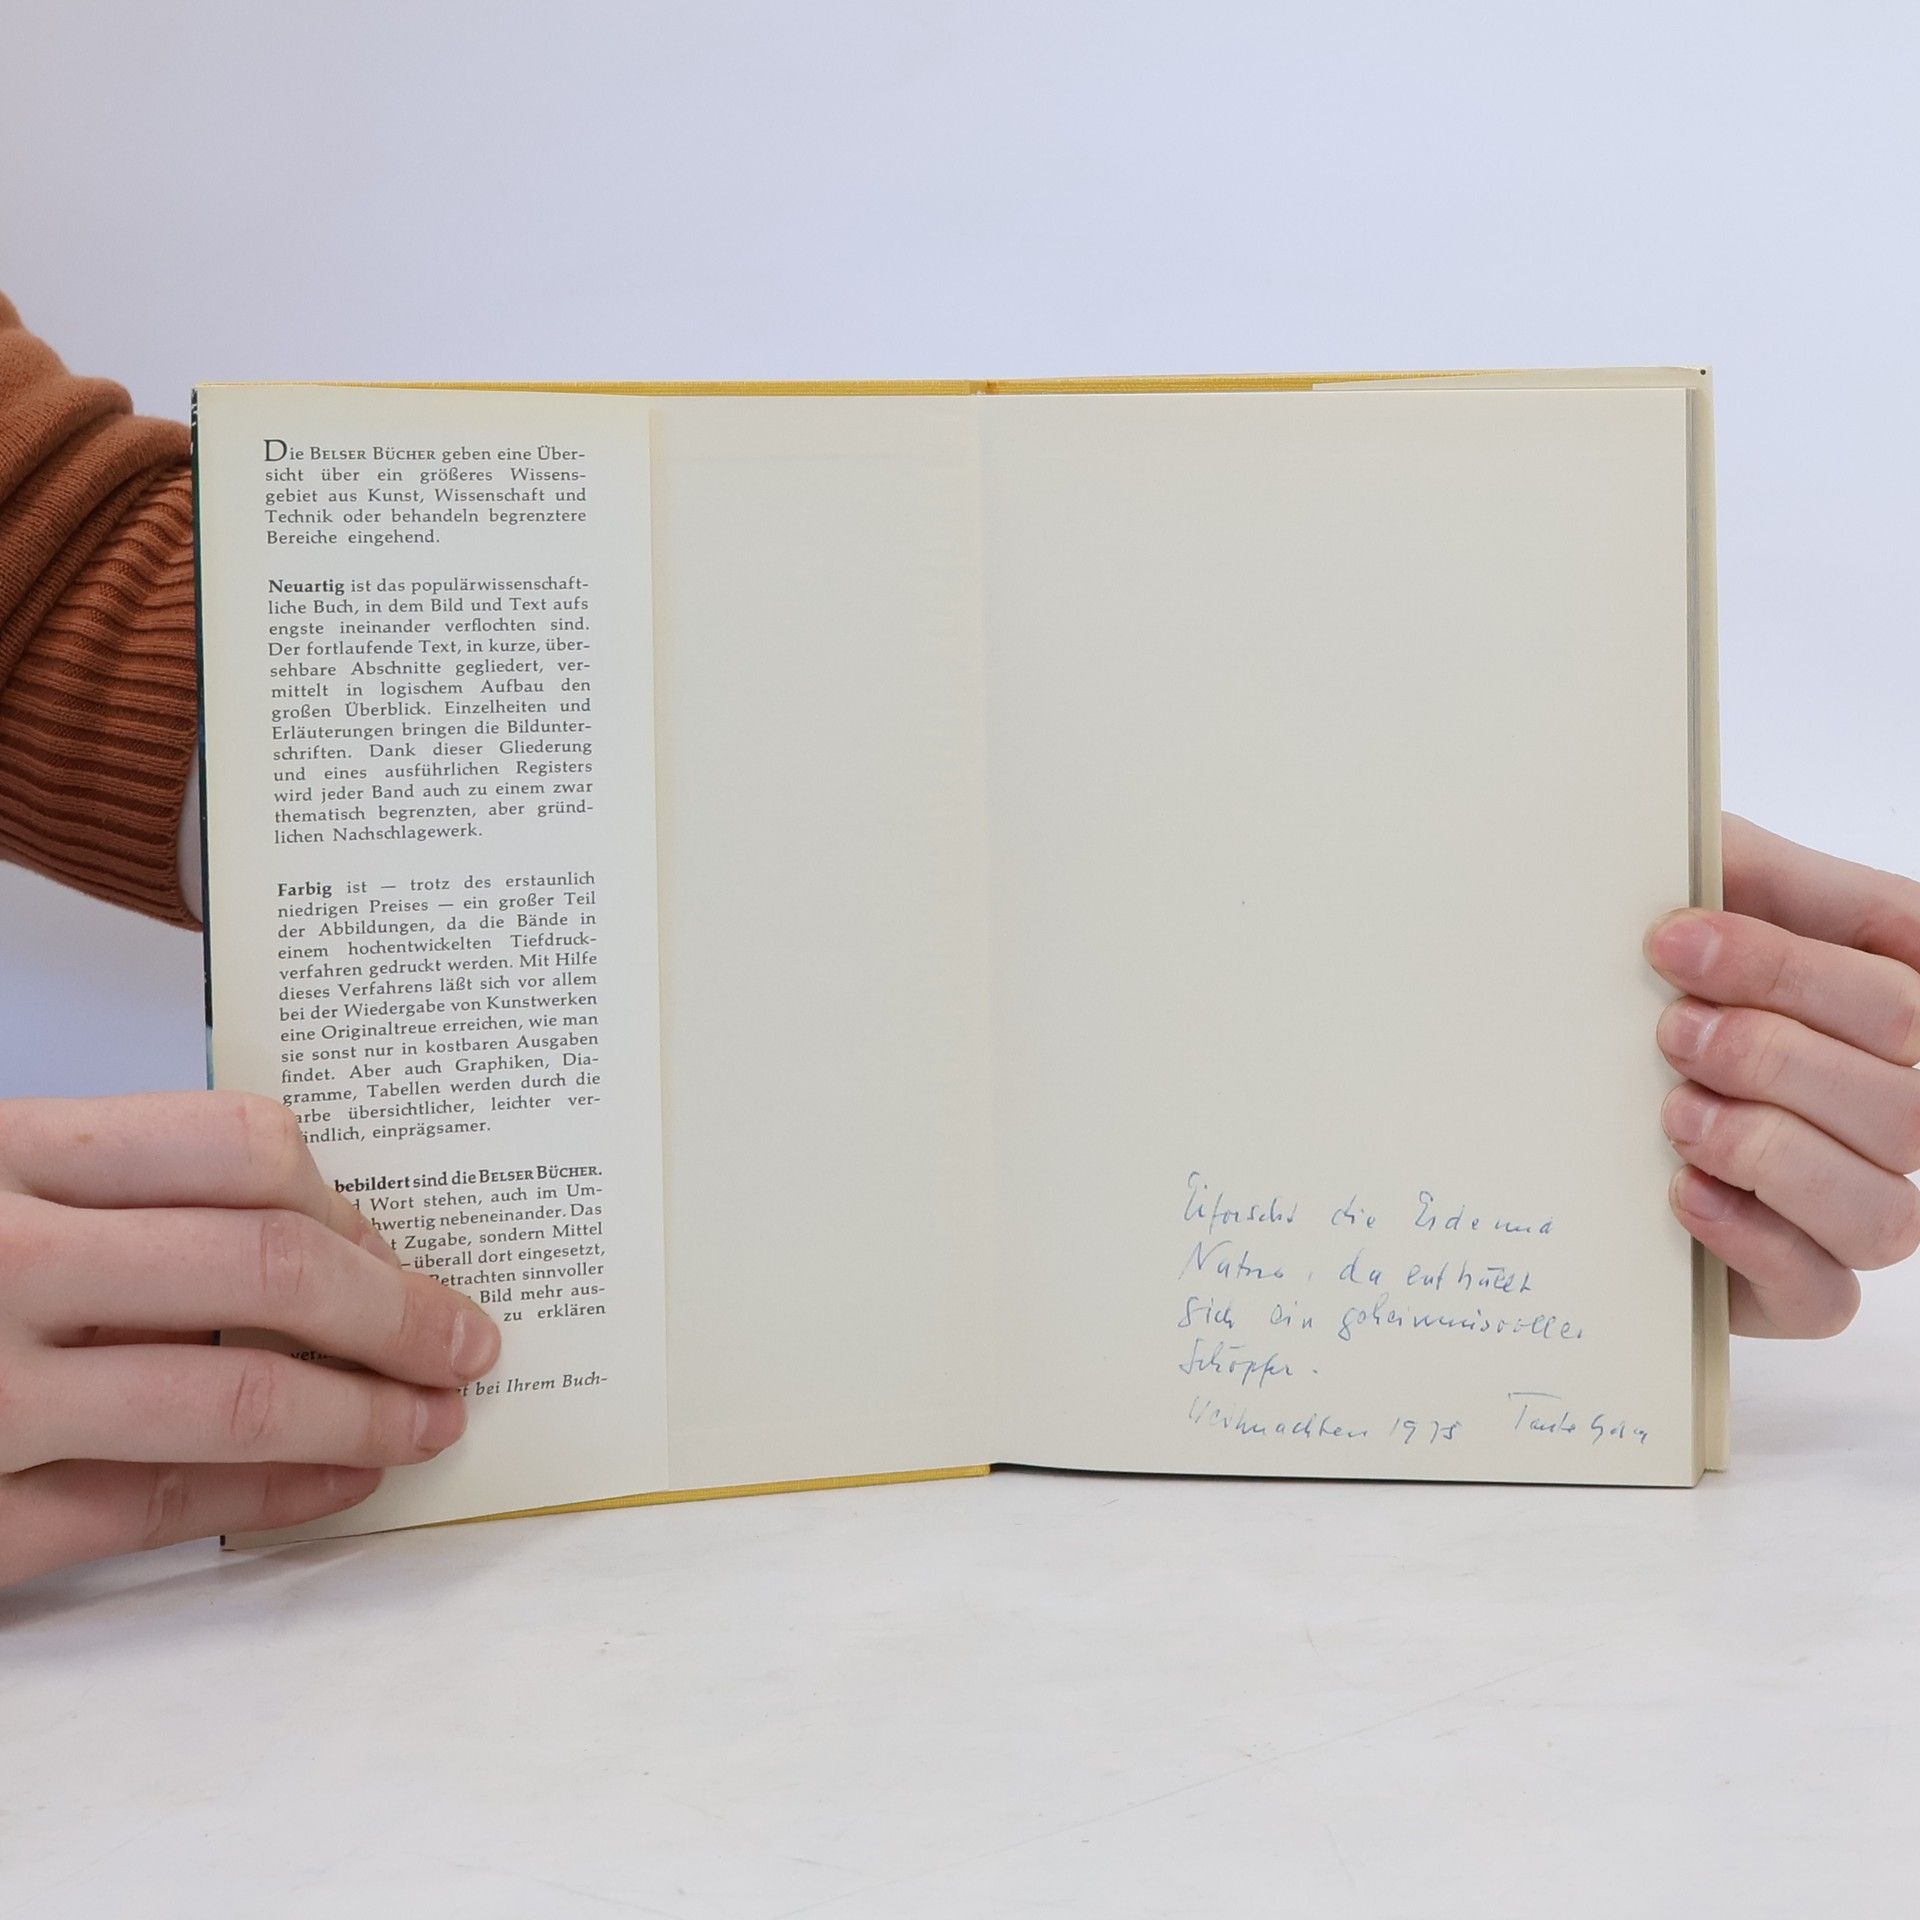 Die BELSER BÜCHER geben eine Über-
sicht über ein größeres Wissens-
gebiet aus Kunst, Wissenschaft und
Technik oder behandeln begrenztere
Bereiche eingehend.
Neuartig ist das populärwissenschaft-
liche Buch, in dem Bild und Text aufs
engste ineinander verflochten sind.
Der fortlaufende Text, in kurze, über-
sehbare Abschnitte gegliedert, ver-
mittelt in logischem Aufbau den
großen Überblick. Einzelheiten und
Erläuterungen bringen die Bildunter-
schriften. Dank dieser Gliederung
und eines ausführlichen Registers
wird jeder Band auch zu einem zwar
thematisch begrenzten, aber gründ-
lichen Nachschlagewerk.
Farbig ist — trotz des erstaunlich
niedrigen Preises — ein großer Teil
der Abbildungen, da die Bände in
einem hochentwickelten Tiefdruck-
verfahren gedruckt werden. Mit Hilfe
dieses Verfahrens läßt sich vor allem
bei der Wiedergabe von Kunstwerken
eine Originaltreue erreichen, wie man
sie sonst nur in kostbaren Ausgaben
findet. Aber auch Graphiken, Dia-
gramme, Tabellen werden durch die
arbe übersichtlicher, leichter ver-
ändlich, einprägsamer.
bebildert sind die BELSER BÜCHER.
d Wort stehen, auch im Um-
hwertig nebeneinander. Das
t Zugabe, sondern Mittel
— überall dort eingesetzt,
Betrachten sinnvoller
Bild mehr aus-
zu erklären
bei Ihrem Buch-
Erforscht die Erde und
Natur, da enthüllt
sich ein geheimnisvoller
Schöpfer.
Weihnachten 1975 Tante